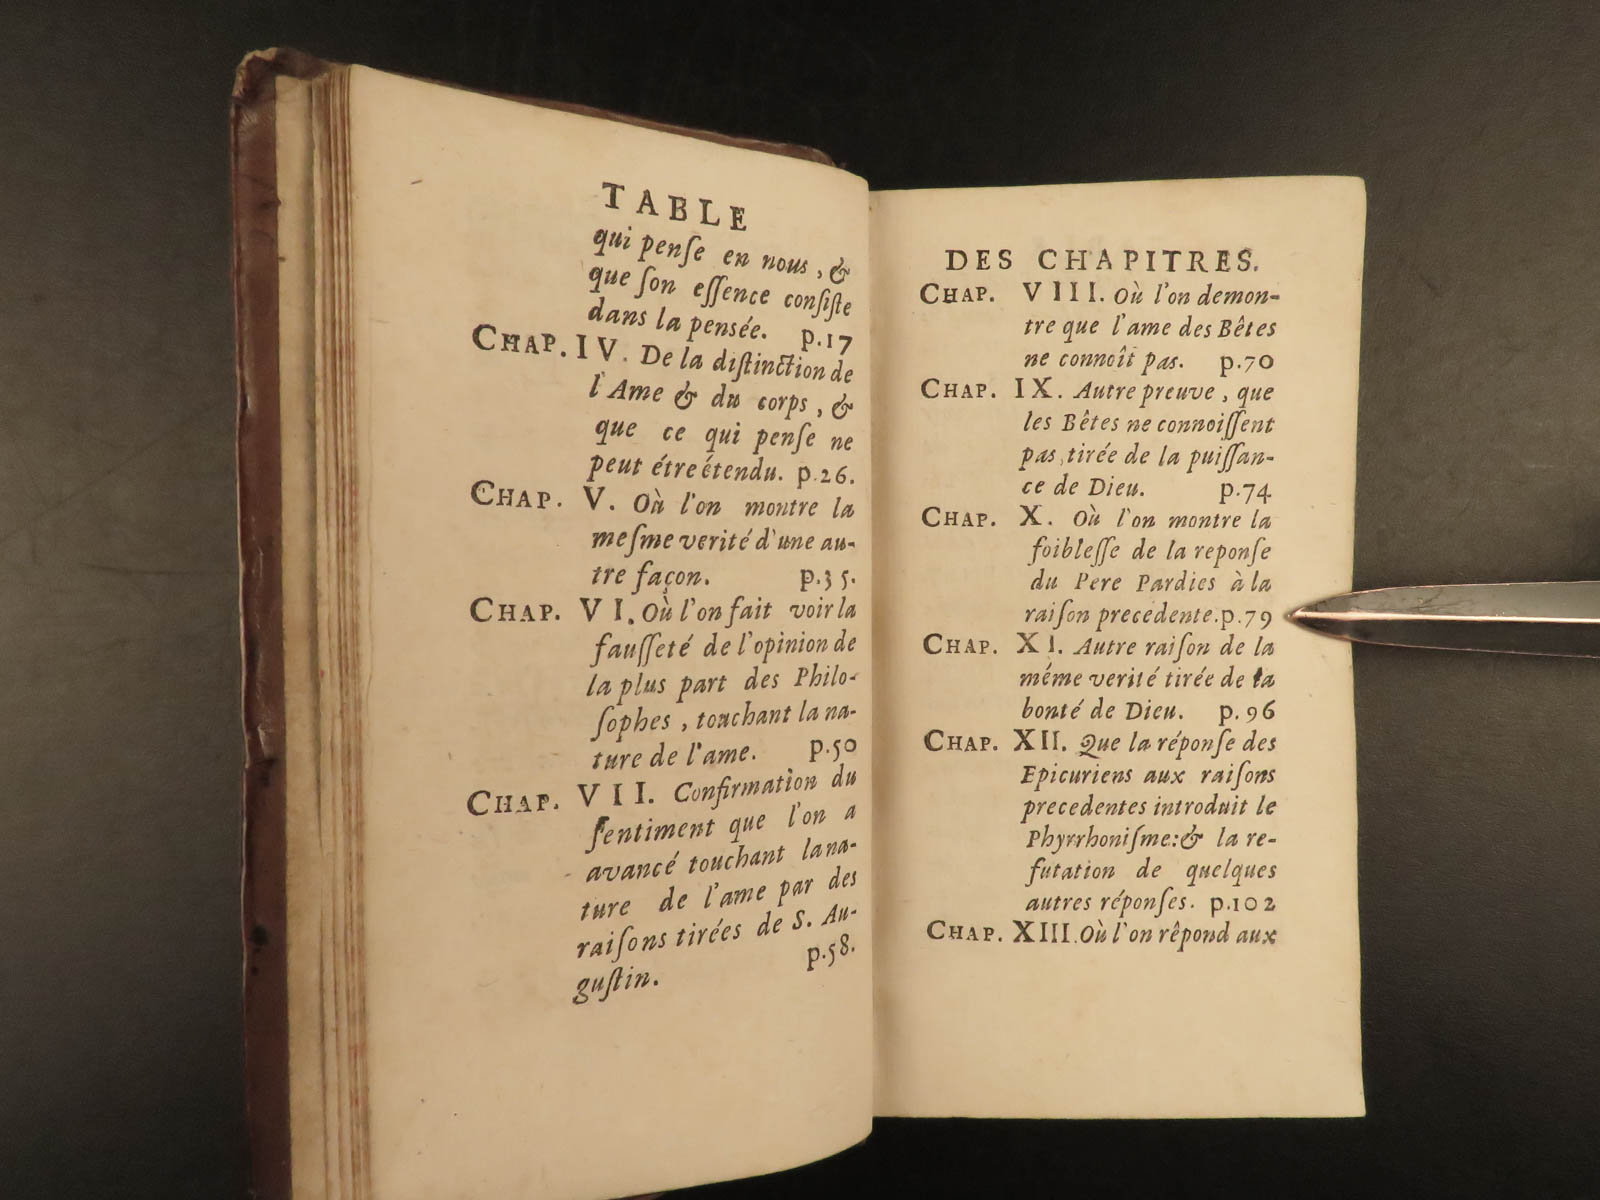 TABLE
qui penſe en nous, &
que ſon eſſence conſiſte
dans la pensée. p.17
CHAP. IV. De la diſtinction de
l'Ame & du corps, &
que ce qui penſe ne
peut étre étendu. p.26.
CHAP. V. Où l'on montre la
meſme verité d'une au-
tre façon. p.35.
CHAP. VI. Où l'on fait voir la
fauſſeté de l'opinion de
la plus part des Philo-
ſophes, touchant la na-
ture de l'ame. p.50
CHAP. VII. Confirmation du
ſentiment que l'on a
avancé touchant la na-
ture de l'ame par des
raiſons tirées de S. Au-
guſtin. p.58.
DES CHAPITRES.
CHAP. VIII. Où l'on demon-
tre que l'ame des Bêtes
ne connoît pas. p.70
CHAP. IX. Autre preuve, que
les Bêtes ne connoiſſent
pas, tirée de la puiſſan-
ce de Dieu. p.74
CHAP. X. Où l'on montre la
foibleſſe de la reponſe
du Pere Pardies à la
raiſon precedente. p.79
CHAP. XI. Autre raiſon de la
méme verité tirée de la
bonté de Dieu. p.96
CHAP. XII. Que la réponſe des
Epicuriens aux raiſons
precedentes introduit le
Phyrrhoniſme: & la re-
futation de quelques
autres réponſes. p.102
CHAP. XIII. Où l'on rêpond aux